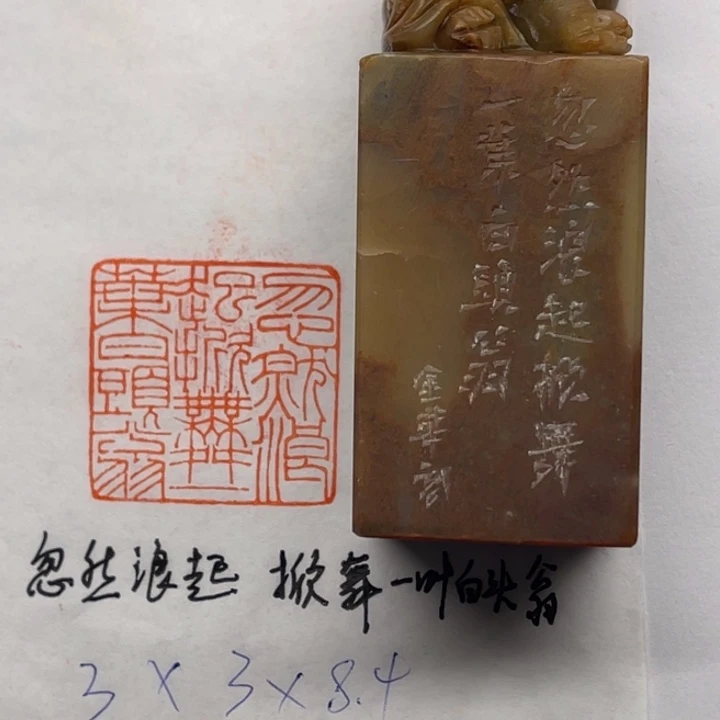 忽然浪
起掀舞一
葉白頭翁
忽然浪起掀舞
一葉白頭翁
金華刻
忽然浪起 掀舞一叶白头翁
3 × 3 × 8.4